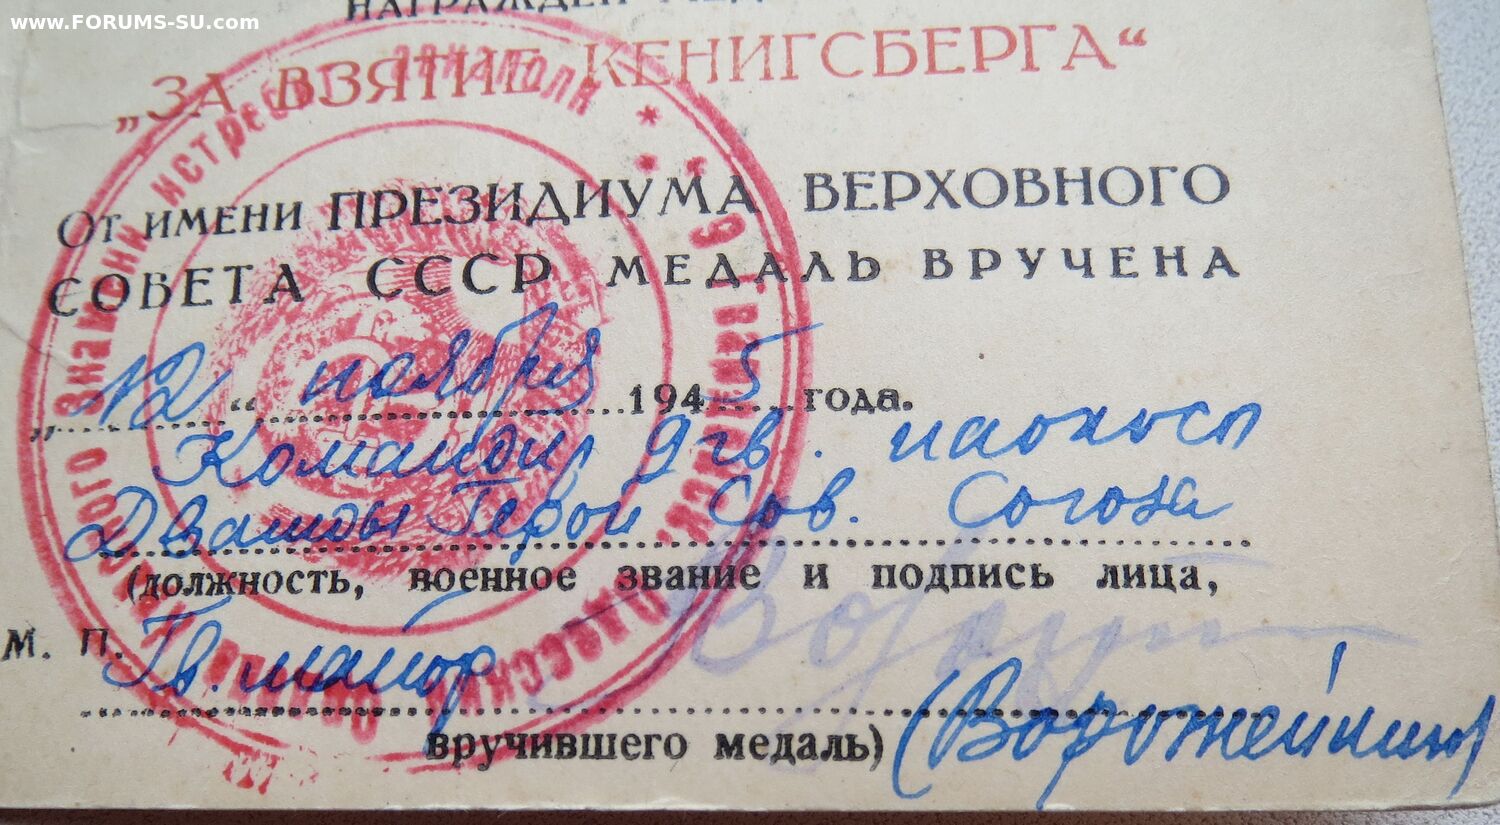 www.FORUMS-SU.com
НАГРАЖДЕН МЕД
„ЗА ВЗЯТИЕ КЕНИГСБЕРГА“
От имени ПРЕЗИДИУМА ВЕРХОВНОГО
СОВЕТА СССР МЕДАЛЬ ВРУЧЕНА
„12“ ноября 1945 года.
Командир 9 гв. иаокпсп
Дважды Герой Сов. Союза
(должность, военное звание и подпись лица,
М. П. Гв. майор
вручившего медаль) (Ворожейкин)
9 Гвардейск. Одесский Краснознаменный истребит. авиаполк * *